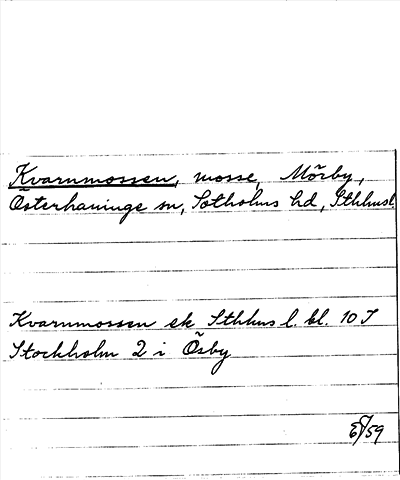 Kvarnmossen, mosse, Mörby,
Österhaninge sn, Sotholms hd, Sthlmsl.
Kvarnmossen ek Sthlms l. bl. 10 J
Stockholm 2 i Ösby
/59